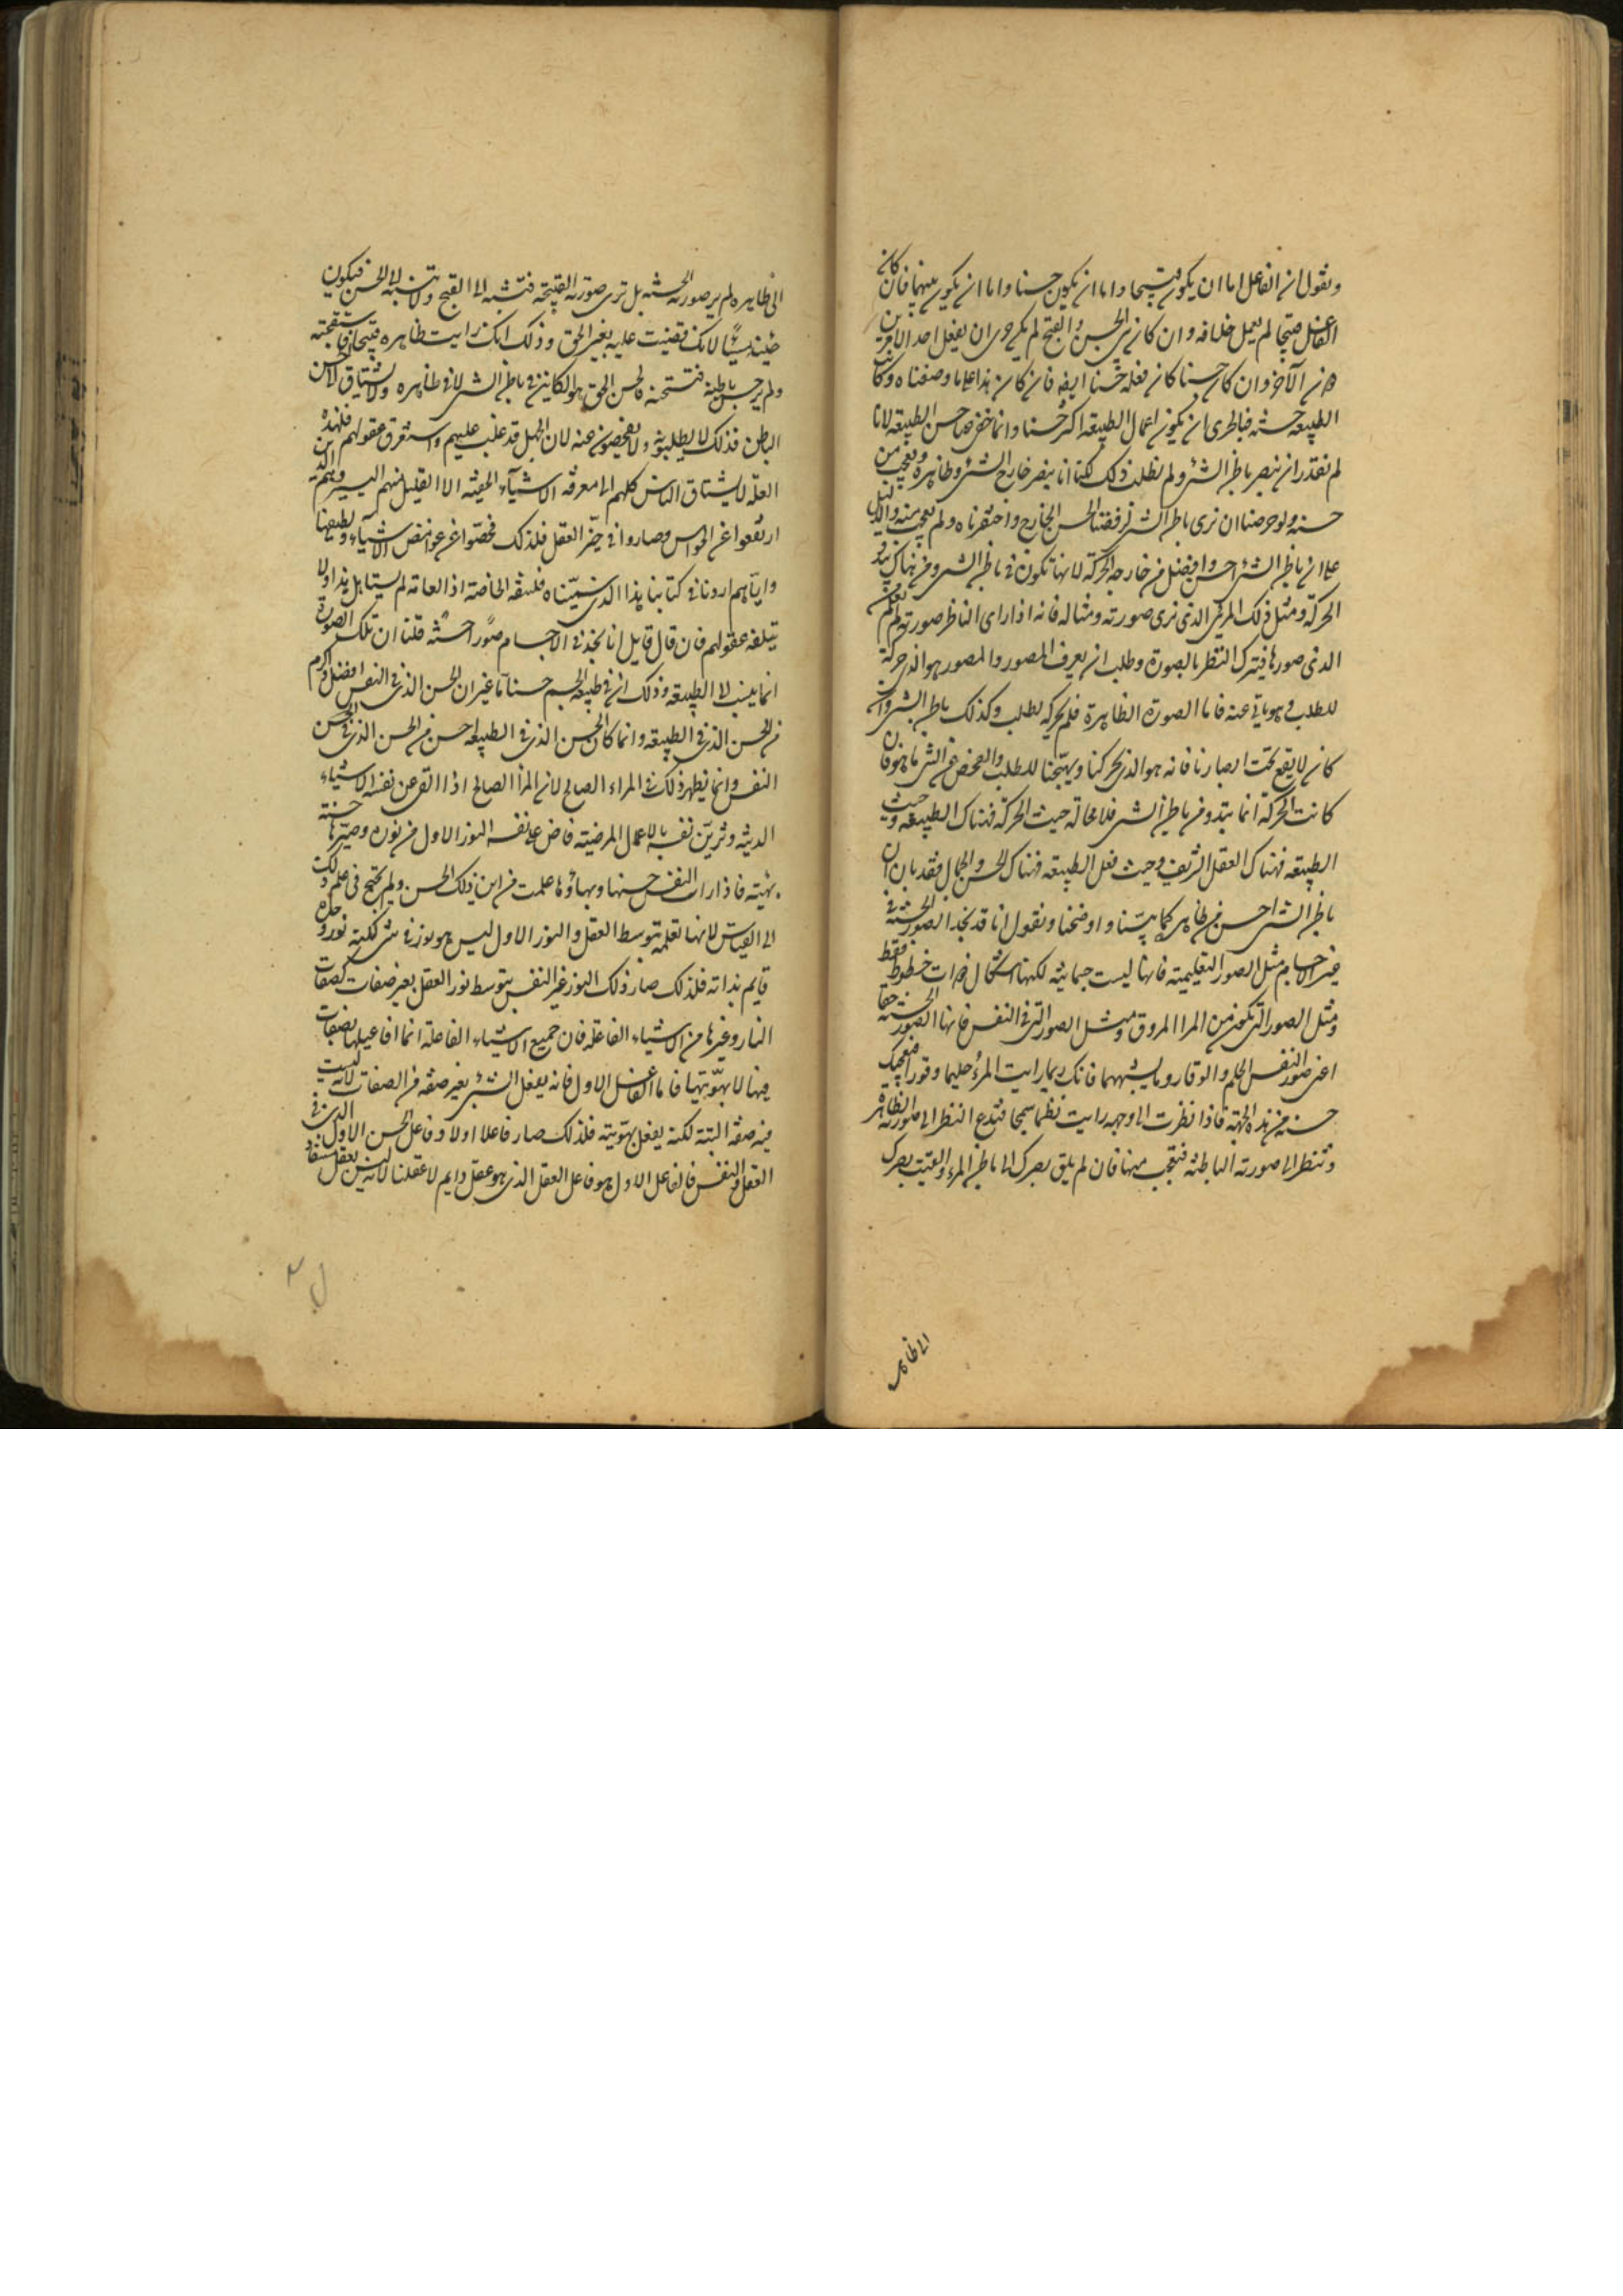 ونقول ان الفاعل اما ان يكون قبيحا واما ان يكون حسنا واما ان يكون بينهما فان كان
الفاعل قبيحا لم يعمل خلافه وان كان بين الحسن والقبح لم يكن حرى ان يفعل احد الامرين
من الآخر وان كان حسنا كان فعله حسنا ايضا فان كان هذا على ما وصفناه وكانت
الطبيعة حسنة فبالحرى ان يكون اعمال الطبيعة اكثر حسنا وانما خفى عنا حسن الطبيعة لانا
لم نقدر ان نبصر باطن الشئ ولم نطلب ذلك لكنا انما نبصر خارج الشئ وظاهره ونعجب من
حسنه ولو حرصنا ان نرى باطن الشئ لرفضنا الحسن الخارج واحتقرناه ولم نعجب منه والدليل
على ان باطن الشئ احسن وافضل من خارجه الحركة لانها تكون فى باطن الشئ ومن هناك يبتدؤ
الحركة ومثل ذلك المرئى الذى نرى صورته ومثاله فانه اذا راى الناظر صورته لم يعلم من
الذى صورها فيترك النظر بالصورة وطلب ان يعرف المصور والمصور هو الذى حركه
للطلب وهو باين عنه فاما الصورة الظاهرة فلم تحركه لطلب وكذلك باطن الشئ وان
كان لا يقع تحت ابصارنا فانه هو الذى يحركنا ويهيجنا للطلب والفحص عن الشئ ما هو فان
كانت الحركة انما تبدو من باطن الشئ فلا محالة حيث الحركة فهناك الطبيعة وحيث
الطبيعة فهناك العقل الشريف وحيث فعل الطبيعة فهناك الحسن والجمال فقد بان ان
باطن الشئ احسن من ظاهره كما بينا واوضحنا ونقول انا قد نجد الصور الحسنة فى
غير الاجسام مثل الصور التعليمية فانها ليست جسمانية لكنها اشكال ذوات خطوط فقط
ومثل الصور التى تكون من المرا المروق ومثل الصور التى فى النفس فانها الصور الحسنة حقا
اعنى صور النفس الحلم والوقار وما يشبههما فانك ربما رايت المرء حليما وقورا فيعجبك
حسنه من هذه الجهة فاذا نظرت الى وجهه رايت نظما سمجا فتدع النظر الى صورته الظاهرة
وتنظر الى صورته الباطنة فتعجب منها فان لم يلق بصرك الى باطن المرء والقيت بصرك
الى ظاهره
الى ظاهره لم تر صورته الحسنة بل ترى صورته القبيحة فتنسبه الى القبح ولا تنسبه الى الحسن فيكون
حينئذ مسيئا لانك قضيت عليه بغير الحق وذلك انك رايت ظاهره قبيحا فاستقبحته
ولم تر حسن باطنه فتستحسنه والحسن الحق هو الكاين فى باطن الشئ لا فى ظاهره ولا يشتاق الى الحسن
الباطن فذلك لا يطلبونه ولا يفحصون عنه لان الجهل قد غلب عليهم واستغرق عقولهم فلهذه
العلة لا يشتاق الناس كلهم الى معرفة الاشياء الخفية الا القليل منهم اليسير وهم الذين
ارتفعوا عن الحواس وصاروا فى حيز العقل فلذلك فحصوا عن غوامض الاشياء ولطيفها
واياهم اردنا فى كتابنا هذا الذى سميناه فلسفة الخاصة اذ العامة لم يستاهل هذا ولا
تبلغه عقولهم فان قال قايل انا نجد فى الاجسام صورا حسنة قلنا ان تلك الصورة
انما ينسب الى الطبيعة وذلك ان فى طبيعة الجسم حسنا ما غير ان الحسن الذى فى النفس افضل واكرم
من الحسن الذى فى الطبيعة وانما كان الحسن الذى فى الطبيعة احسن من الحسن الذى فى الحسن
النفس وانما يظهر ذلك فى المراء الصالح لان المرأ الصالح اذا القى عن نفسه الاشياء
الدنية وزين نفسه بالاعمال المرضية فاض على نفسه النور الاول من نوره وصيرها حسنة
بهية فاذا رات النفس حسنها وبهاؤها علمت من اين ذلك الحسن ولم يحتج فى علم ذلك
الى القياس لانها تعلمه بتوسط العقل والنور الاول ليس هو بنور فى شئ لكنه نور وحده
قايم بذاته فلذلك صار ذلك النور ينير النفس بتوسط نور العقل بغير صفات كصفات
النار وغيرها من الاشياء الفاعلة فان جميع الاشياء الفاعلة انما افاعيلها بصفات
فيها لا بهويتها فاما الفاعل الاول فانه يفعل الشئ بغير صفة من الصفات لانه ليست
فيه صفة البتة لكنه يفعل بهويته فلذلك صار فاعلا اولا وفاعل الحسن الاول الذى فى
العقل والنفس فالفاعل الاول هو فاعل العقل الذى هو عقل دايم لا عقلنا لانه ليس بعقل مستفاد